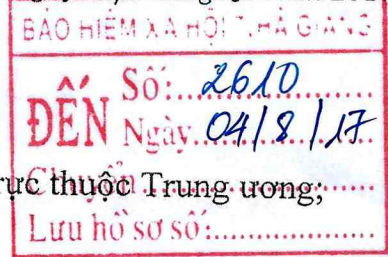 BẢO HIỂM XÃ HỘI T.HÀ GIANG
ĐẾN
Số:....2610
Ngày..04/8/17
Chuyển
rực thuộc Trung ương;
Lưu hồ sơ số: